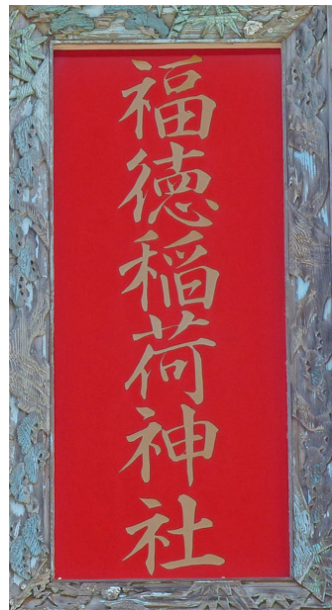 福徳稲荷神社